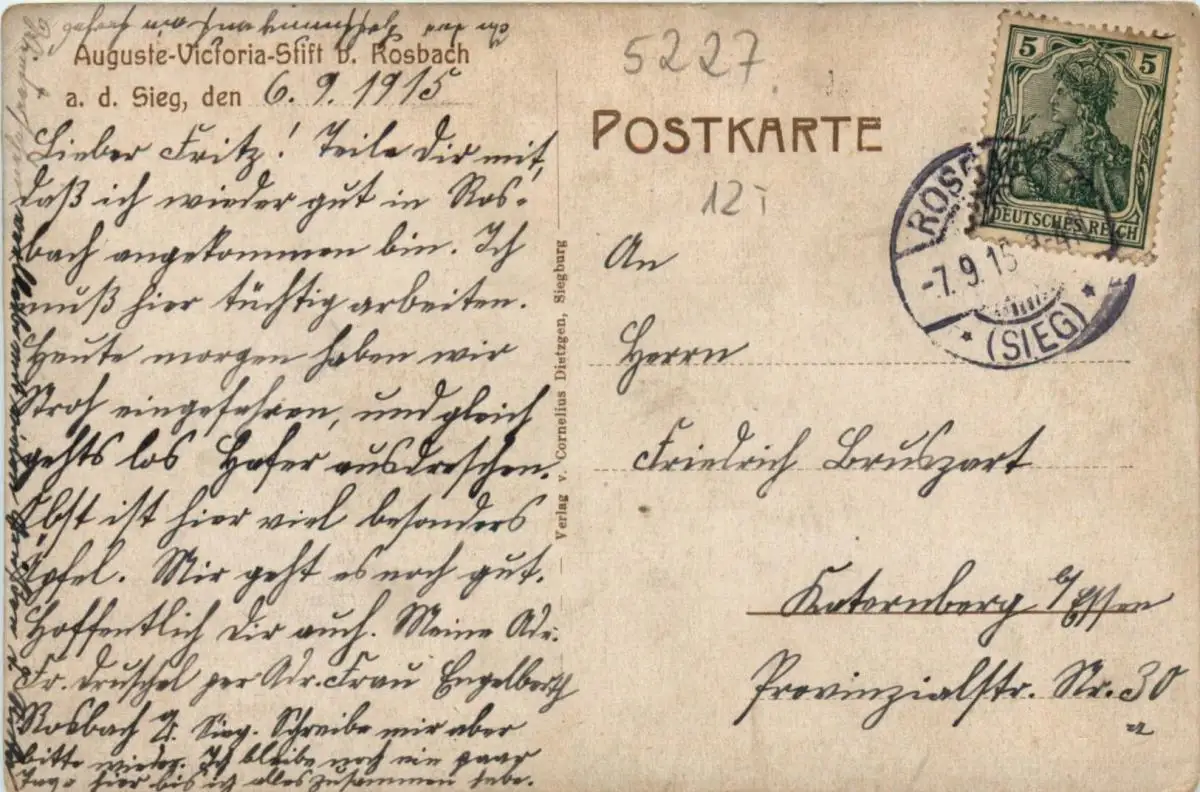 Auguste-Victoria-Stift b. Rosbach
a. d. Sieg, den 6. 9. 1915
Lieber Fritz! Teile Dir mit,
daß ich wieder gut in Ros-
bach angekommen bin. Ich
muß hier tüchtig arbeiten.
Heute morgen haben wir
Stroh eingefahren, und gleich
gehts los Hafer ausdreschen.
Obst ist hier viel besonders
Äpfel. Mir geht es noch gut.
Hoffentlich Dir auch. Meine Adr.
Fr. Druschel per Adr. Frau Engelberth
Rosbach a/ Sieg. Schreibe mir aber
bitte wieder. Ich bleibe noch ein paar
Tage hier bis ich alles zusammen habe.
Verlag v. Cornelius Dietzgen, Siegburg
5227
POSTKARTE
12
5 5
DEUTSCHES REICH
-7.9.15
(SIEG)
An
Herrn
Friedrich Bruszart
Katernberg b/Essen
Provinzialstr. Nr. 30